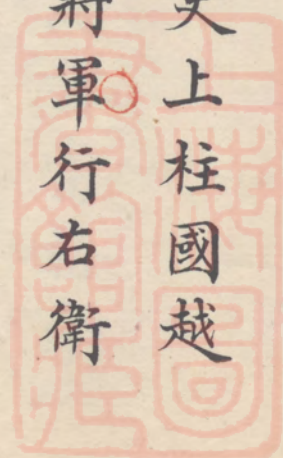 上柱國越
將軍行右衛